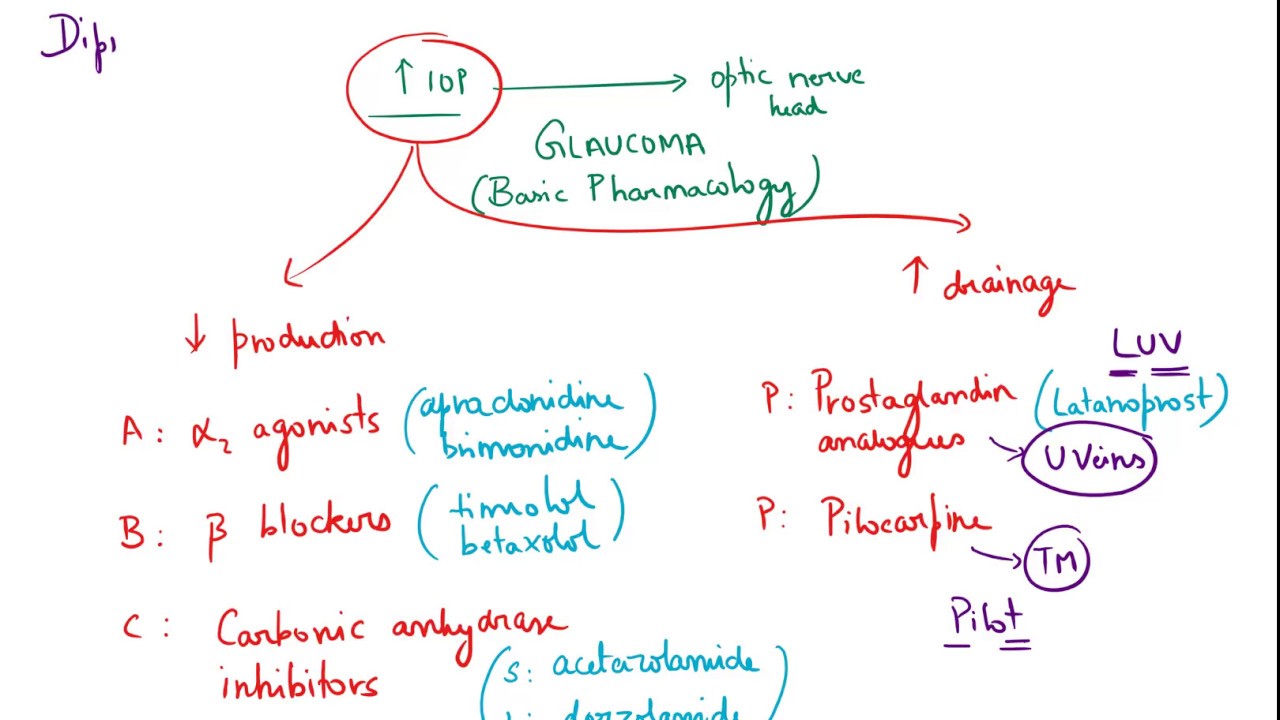 ↑ IOP
optic nerve
head
GLAUCOMA
(Basic Pharmacology)
↓ production
A: α₂ agonists (apraclonidine
brimonidine)
B: β blockers (timolol
betaxolol)
C: Carbonic anhydrase
inhibitors
(S: acetazolamide
dorzolamide
↑ drainage
LUV
P: Prostaglandin (Latanoprost)
analogues
UVeins
P: Pilocarpine
TM
Pilot